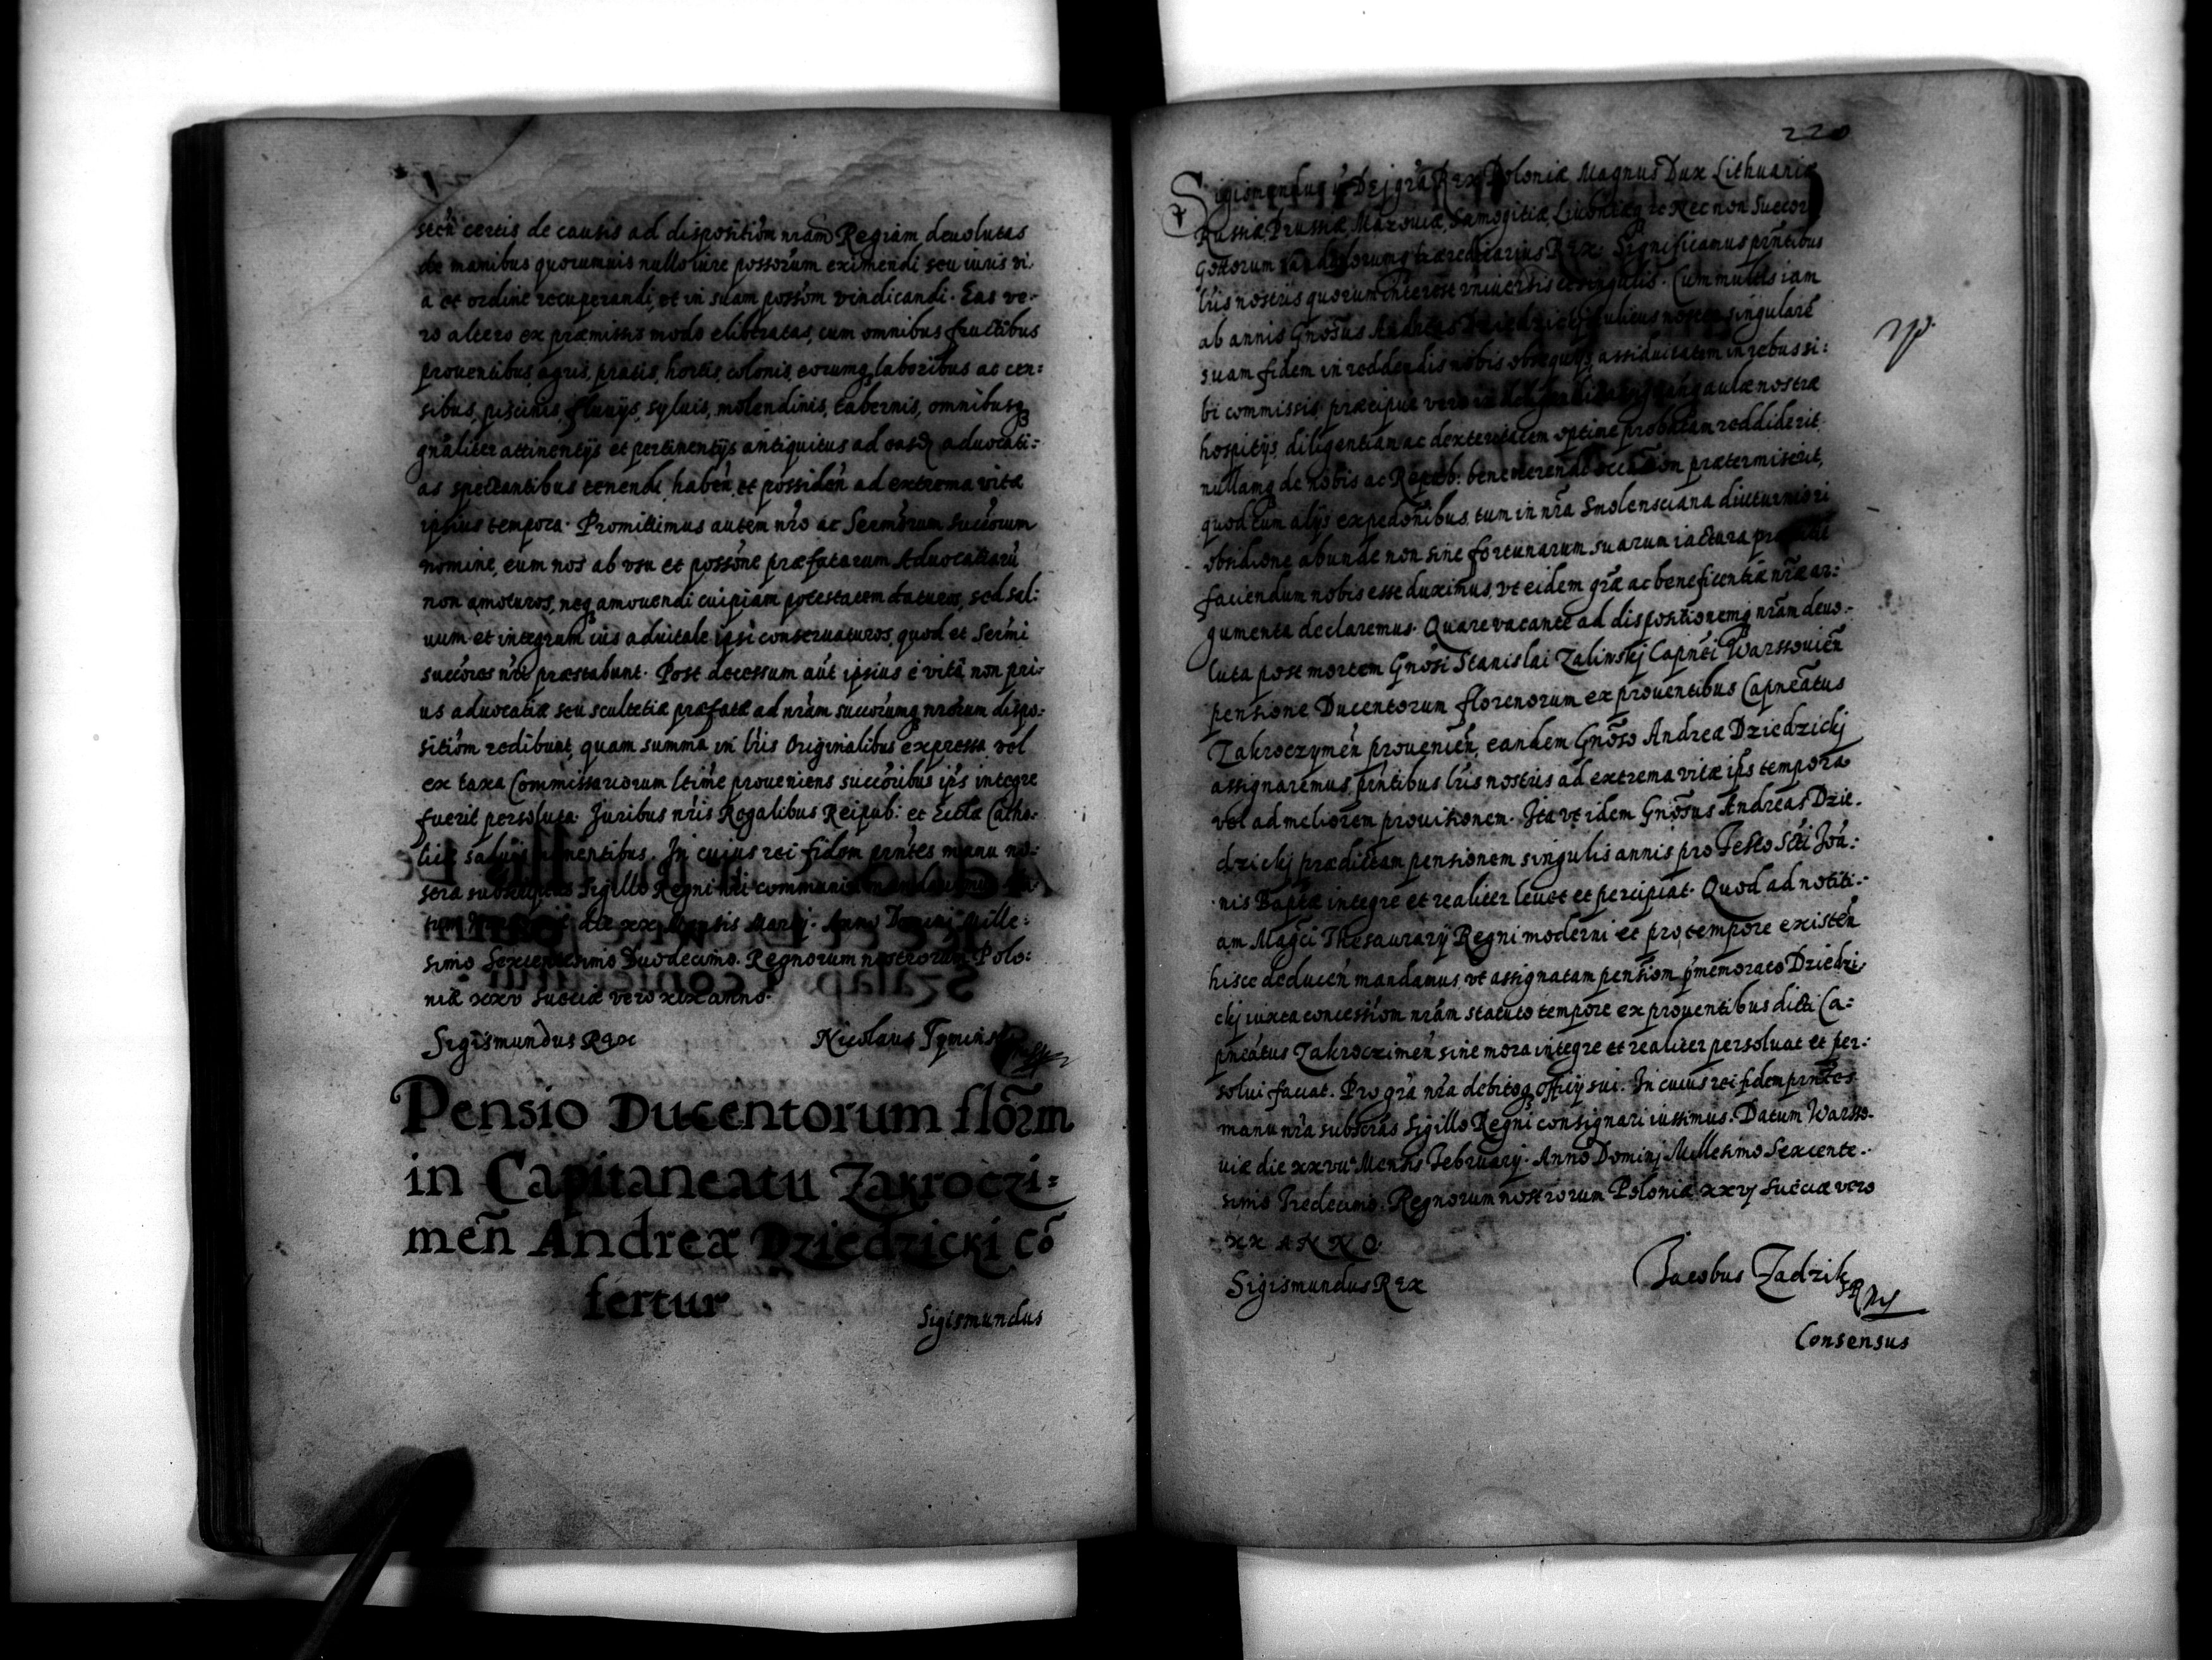 certis de causis ad dispositiōm nrām Regiam devolutas
de manibus quorumuis nullo iure possorum eximendi seu iuris vi:
a et ordine recuperandi, et in suam possōm vindicandi. Eas ve:
ro altero ex præmissis modo eliberatas, cum omnibus fructibus
prouentibus, agris, pratis, hortis, colonis, eorumq laboribus ac cen:
sibus, piscinis, fluuijs, syluis, molendinis, tabernis, omnibusq
gnāliter attinentijs et pertinentijs antiquitus ad easd aduocati:
as spectantibus tenendi, habeñ, et possideñ ad extrema vitæ
ipsius tempora. Promittimus autem nro ac Sermorum succorum
nomine, eum nos ab vsu et possōne præfatarum Aduocatiarū
non amoturos, neq amouendi cuipiam potestatem daturos, sed sal:
uum et integrum ius aduitale ipsi conseruaturos, quod et Sermi
succores nri præstabunt. Post decessum aūt ipsius è vita non pri:
us aduocatiæ seu scultetiæ præfatæ ad nrām succorumq nrorum dispo:
sitiōm redibunt, quam summa in lris Originalibus expressa vel
ex taxa Commissariorum ltimè proueniens succoribus ips integre
fuerit persoluta. Juribus nris Regalibus Reipub: et Ecclæ Catho:
licæ saluis manentibus. In cuius rei fidem prntes manu no:
stra subscriptas Sigillo Regni nri communiri
die xx Mensis Martij. Anno Domini Mille:
simo Sexcentesimo Duodecimo. Regnorum nostrorum Polo:
niæ xxv Sueciæ vero xix anno.
Sigismundus Rex Nicolaus
Pensio Ducentorum flōrm
in Capitaneatu Zakroczi:
meñ Andreæ Dziedzicki cō
fertur
Sigismundus
220
Sigismundus Dej gra Rex Poloniæ Magnus Dux Lithuaniæ
Russiæ, Prussiæ, Mazouiæ, Samogitiæ, Liuoniæq zc Nec non Suecor
Gottorum Vandalorumq hæreditarius Rex. Significamus prntibus
lris nostris quorum interest vniuersis et singulis. Cum multis iam
ab annis Gnosus Andreas Dziedzicki Aulicus noster singularē
suam fidem in reddendis nobis obsequijs, assiduitatem in rebus si:
bi commissis, præcipue vero in aulæ nostræ
hospitijs, diligentiam ac dexteritatem optime probatam reddiderit,
nullamq de nobis ac Repub: bene merendi occasion prætermiserit,
quod cum alijs expedonibus, tum in nra Smolensciana diuturniori
obsidione abunde non sine fortunarum suarum iactura
faciendum nobis esse duximus, vt eidem græ ac beneficentiæ nræ ar:
gumenta declaremus. Quare vacante ad dispositionemq nrām deuo:
luta post mortem Gnosi Stanislai Zalinskj Capnei Warssouieñ
pensione Ducentorum florenorum ex prouentibus Capneatus
Zakroczymeñ prouenieñ, eandem Gnoso Andreæ Dziedzickj
assignaremus, prntibus lris nostris ad extrema vitæ ips tempora
vel ad meliorem prouisionem. Ita vt idem Gnosus Andreas Dzie:
dzickj prædictam pensionem singulis annis pro Festo Scti Joā:
nis Baptæ integre et realiter leuet et percipiat. Quod ad notiti:
am Magci Thesaurarij Regni moderni et pro tempore existeñ
hisce deduceñ mandamus vt assignatam pensiōm pmemorato Dziedzi
ckj iuxta concessiōm nrām statuto tempore ex prouentibus dicti Ca:
pneatus Zakroczimeñ sine mora integre et realiter persoluat et per:
solui faciat. Pro gra nra debitoq officij sui. In cuius rei fidem prntes
manu nra subscras Sigillo Regni consignari iussimus. Datum Warsso:
uiæ die xxvii Mensis February. Anno Dominj Millesimo Sexcente:
simo Tredecimo. Regnorum nostrorum Poloniæ xxvj Sueciæ vero
xx ANNO.
Sigismundus Rex Jacobus Zadzik
Consensus